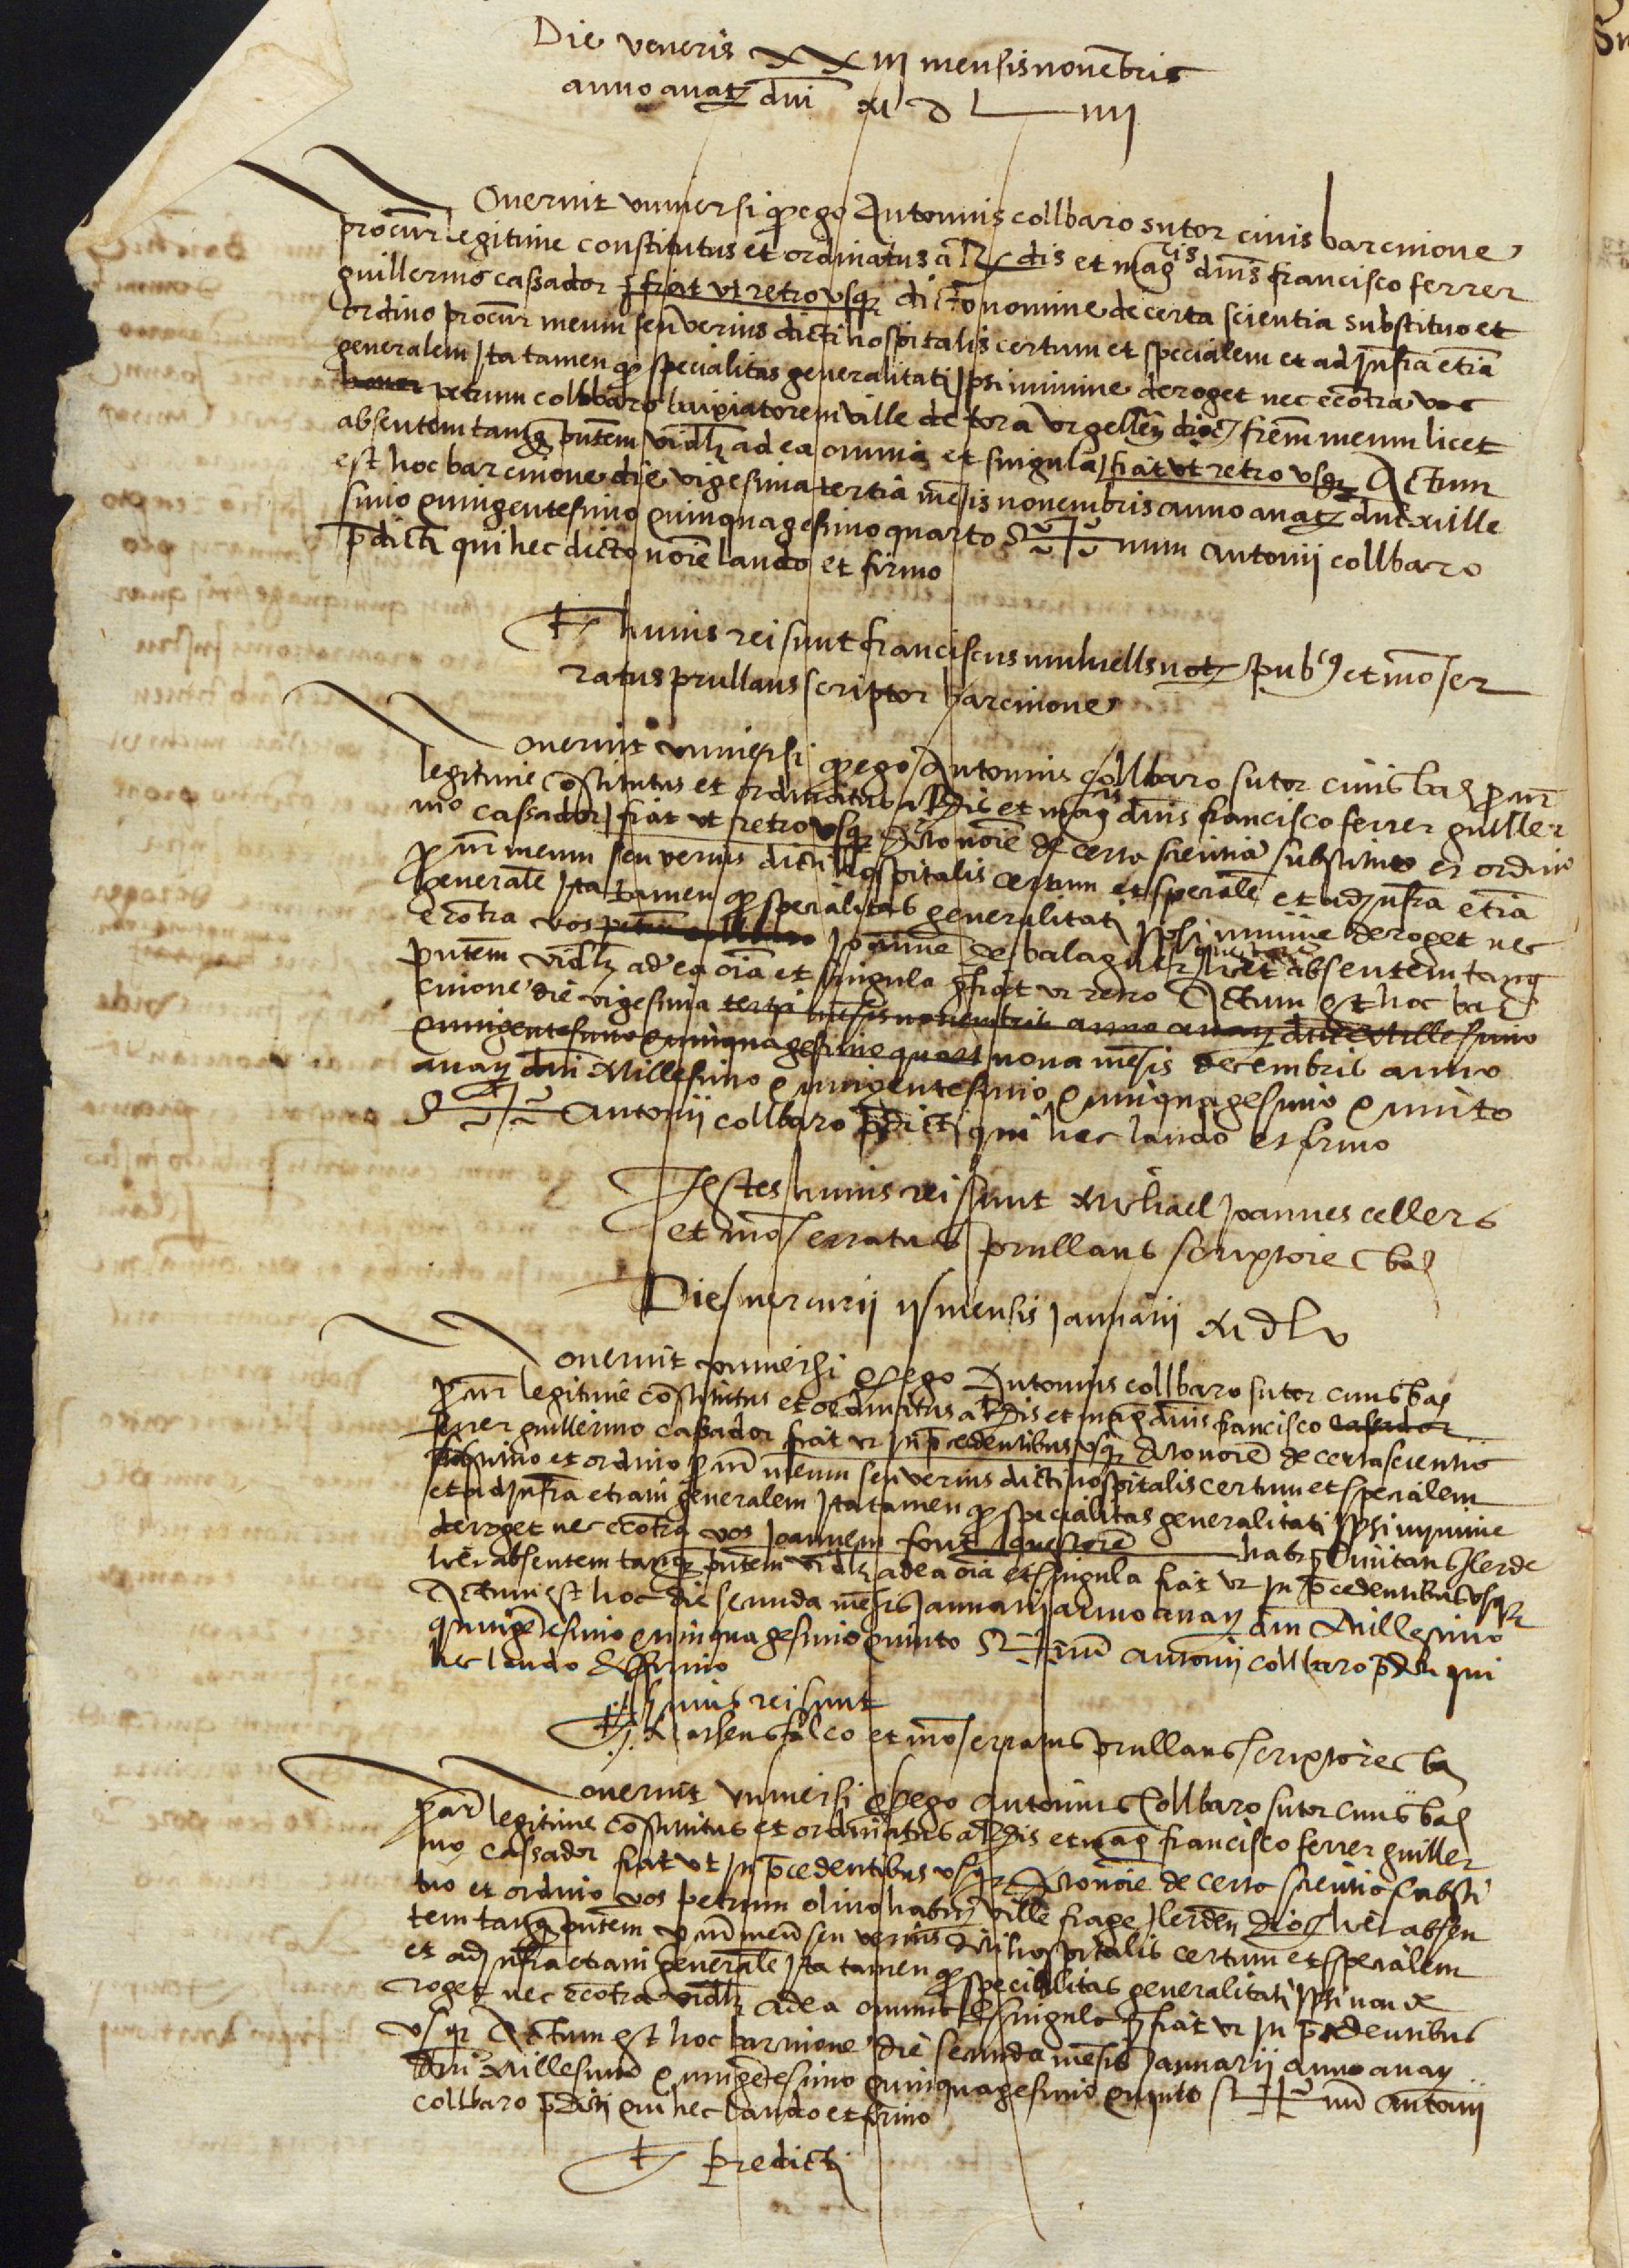 Die veneris XXIII mensis novēbris
anno a nat dñi M D L IIII
Noverint universi q ego Antonius collbaro sutor civis barcinone
procur legitime constitutus et ordinatus a R dis et mag cis dñis francisco ferrer
guillermo cassador fiat ut retro usq dicto nomine de certa scientia substituo et
ordino procur meum seu verius dicti hospitalis certum et specialem et ad infra etiā
generalem Ita tamen q specialitas generalitati ipsi minime deroget nec ecōtra vos
petrum collbaro ville de tora Urgelleñ dioc frēm meum licet
absentem tanq pñtem vidlz ad ea omnia et singula fiat ut retro usq Actum
est hoc barcinone die vigesima tertia mēsis novembris anno a nat dñi Mille
simo quingentesimo quinquagesimo quarto Sig+num Antonij collbaro
p̄dicti qui hec dicto noīe laudo et firmo
T huius rei sunt franciscus mulnells not pub cus et mōser
ratus prullans scriptor barcinone
Noverint universi q ego Antonius collbaro sutor civis bar p cur
legitime cōstitutus et ordinatus a R dis et mag cis dñis francisco ferrer guiller
mo cassador fiat ut retro usq dicto noīe de certa scientia substituo et ordino
p cur meum seu verius dicti hospitalis certum et speciale et ad infra etiā
generale Ita tamen q specialitas generalitati ipsi minime deroget nec
ecōtra vos petrum collbaro Joannē de balaguer licet absentem tanq
pñtem vidlz ad ea oīa et singula fiat ut retro Actum est hoc bar
cinone die vigesima tertia mēsis novembris anno a nat dñi Millesimo
quingentesimo quinquagesimo quart nona mēsis decembris anno
a nat dñi Millesimo quingentesimo quinquagesimo quinto
S+ Antonij collbaro p̄dicti qui hec laudo et firmo
Testes huius rei sunt Michael Joannes cellers
et mōserratus prullans scriptores bar
Die mercurij ij mensis Januarij M d l v
Noverint universi q ego Antonius collbaro sutor civis bar
p cur legitime cōstitutus et ordinatus a R dis et mag dñis francisco casador
ferrer guillermo cassador fiat ut in p̄cedentibus usq dicto noīe de certa scientia
substituo et ordino p cur meum seu verius dicti hospitalis certum et specialem
et ad infra etiam generalem Ita tamen q specialitas generalitati ipsi minime
deroget nec ecōtra vos Joannem font questorē habit Civitatis Ilerde
licet absentem tanq pñtem vidlz ad ea oīa et singula fiat ut in p̄cedentibus usq
Actum est hoc die secunda mēsis Januarij anno a nat dñi Millesimo
quingētesimo quinquagesimo quinto Sig+num Antonij collbaro p̄dicti qui
hec laudo et firmo
T huius rei sunt
falco et mōserratus prullans scriptores bar
Noverint universi q ego Antonius Collbaro sutor civis bar
p cur legitime cōstitutus et ordinatus a R dis et mag francisco ferrer guiller
mo cassador fiat ut in p̄cedentibus usq dicto noīe de certa scientia substi
tuo et ordino vos petrum olivo habit ville frage Ilerdeñ dioc licet absen
tem tanq pñtem p cur meū seu verius dicti hospitalis certum et specialem
et ad infra etiam generale Ita tamen q specialitas generalitati ipsi non de
roget nec ecōtra vidlz ad ea omnia et singula fiat ut in p̄cedentibus
usq Actum est hoc barcinone die secunda mēsis Januarij anno a nat
dñi Millesimo quingētesimo quinquagesimo quinto Sig+num Antonij
collbaro p̄dicti qui hec laudo et firmo
T predicti